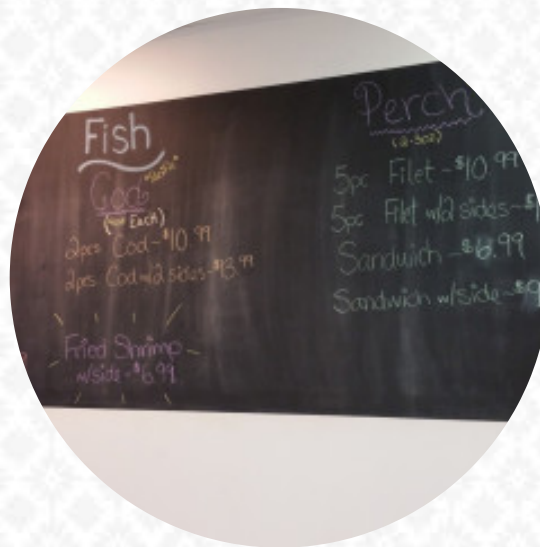 Fish
Cod
Each)
2pcs Cod-$10.99
2pcs Cod w/2 sides-$13.99
Fried Shrimp
w/side-$6.99
Perch
(2-3oz)
5pc Filet-$10.99
5pc Filet w/2 sides-$1
Sandwich-$6.99
Sandwich w/side-$9